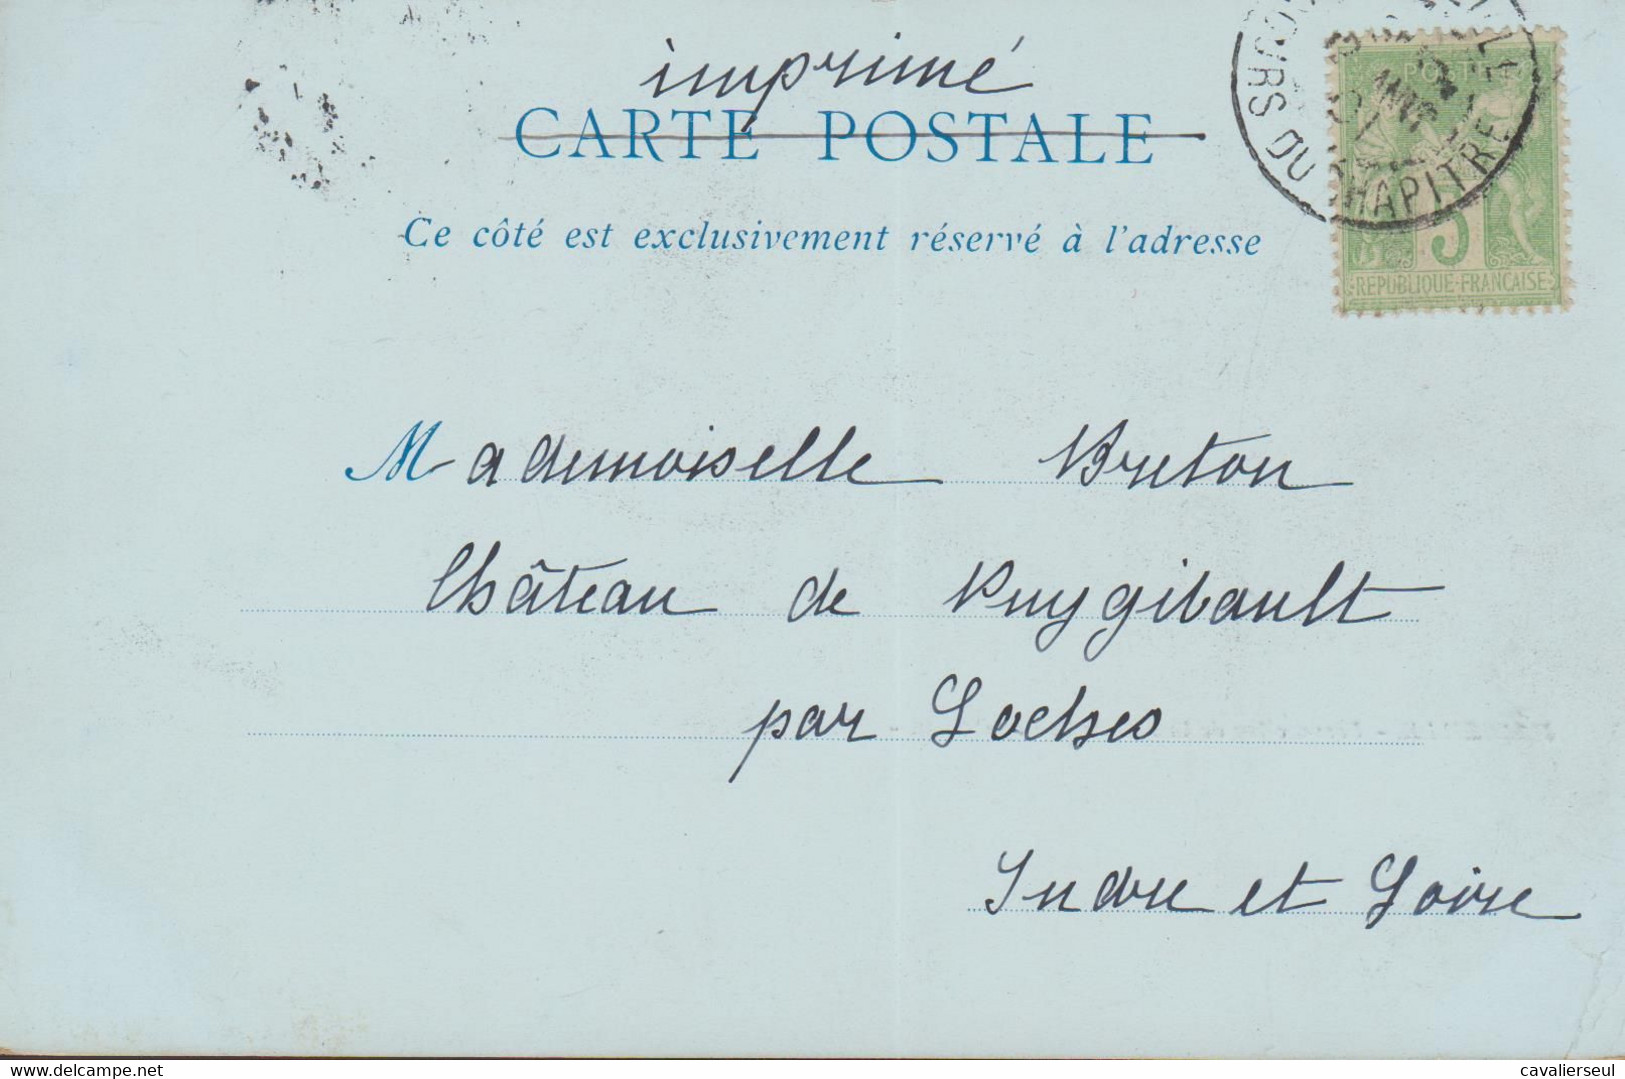 imprimé
CARTE POSTALE
Ce côté est exclusivement réservé à l'adresse
COURS DU CHAPITRE
POSTES
5
REPUBLIQUE FRANÇAISE
Mademoiselle Breton
Château de Puygibault
par Loches
Indre et Loire
delcampe.net
cavalierseul